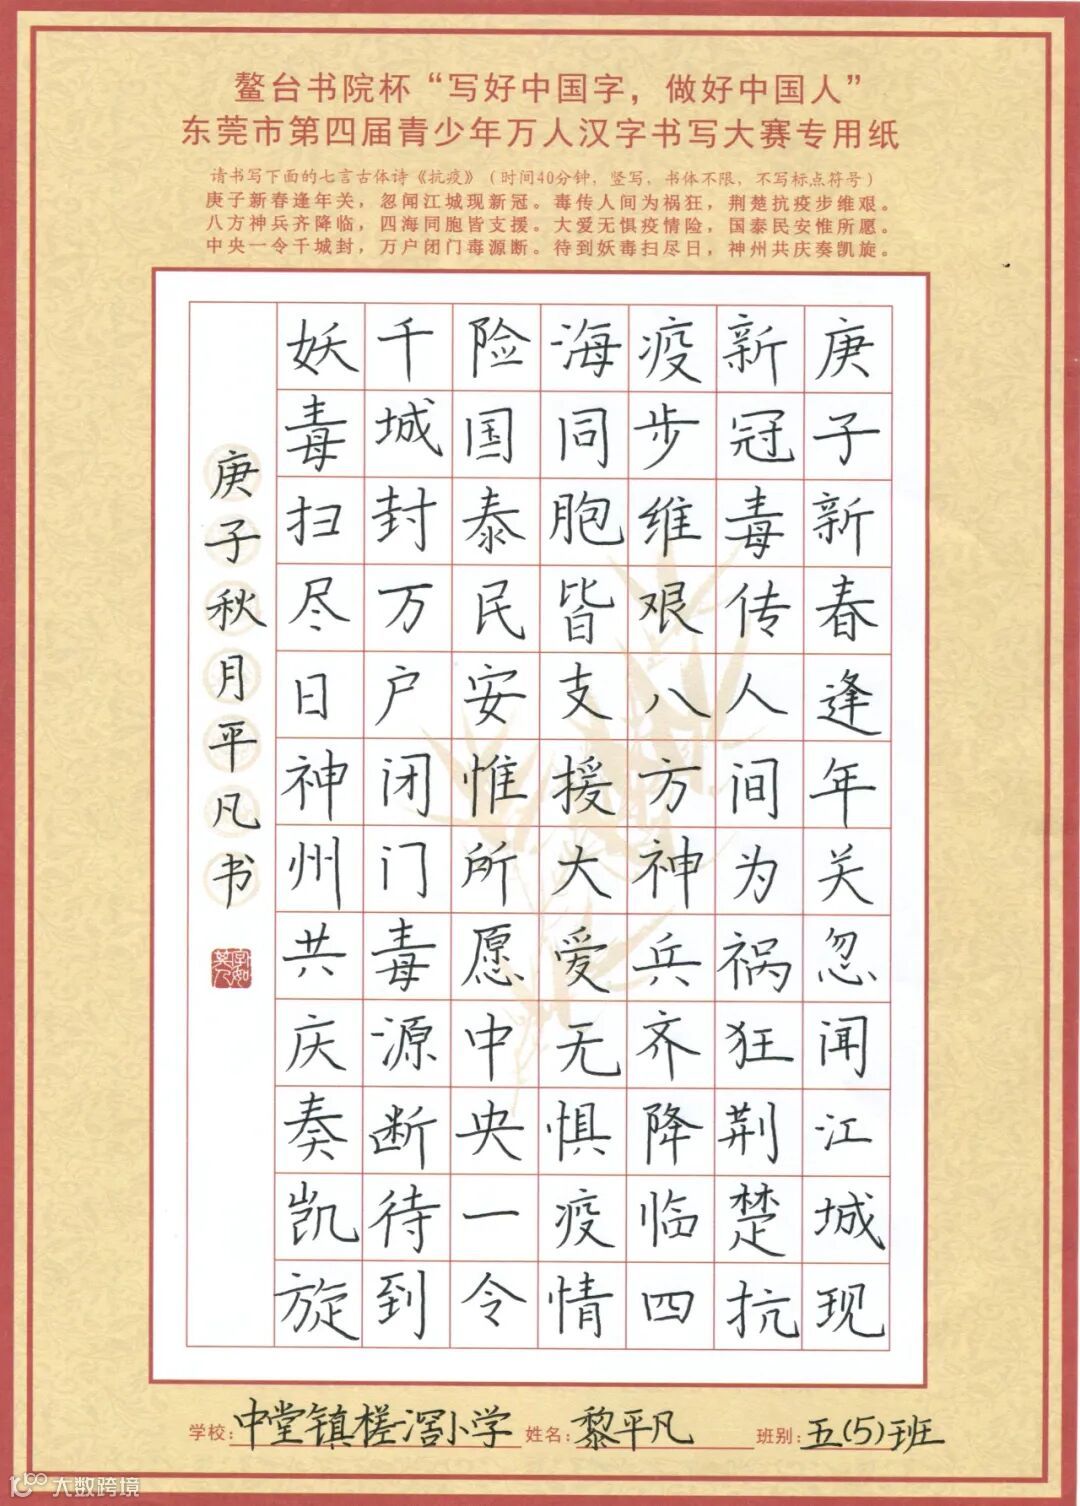 鳌台书院杯“写好中国字，做好中国人”
东莞市第四届青少年万人汉字书写大赛专用纸
请书写下面的七言古体诗《抗疫》（时间40分钟，竖写，书体不限，不写标点符号）
庚子新春逢年关，忽闻江城现新冠。毒传人间为祸狂，荆楚抗疫步维艰。
八方神兵齐降临，四海同胞皆支援。大爱无惧疫情险，国泰民安惟所愿。
中央一令千城封，万户闭门毒源断。待到妖毒扫尽日，神州共庆奏凯旋。
庚子新春逢年关忽闻江城现
新冠毒传人间为祸狂荆楚抗
疫步维艰八方神兵齐降临四
海同胞皆支援大爱无惧疫情
险国泰民安惟所愿中央一令
千城封万户闭门毒源断待到
妖毒扫尽日神州共庆奏凯旋
庚子秋月平凡书
学校:中堂镇槎滘小学 姓名:黎平凡 班别:五(5)班
大数跨境